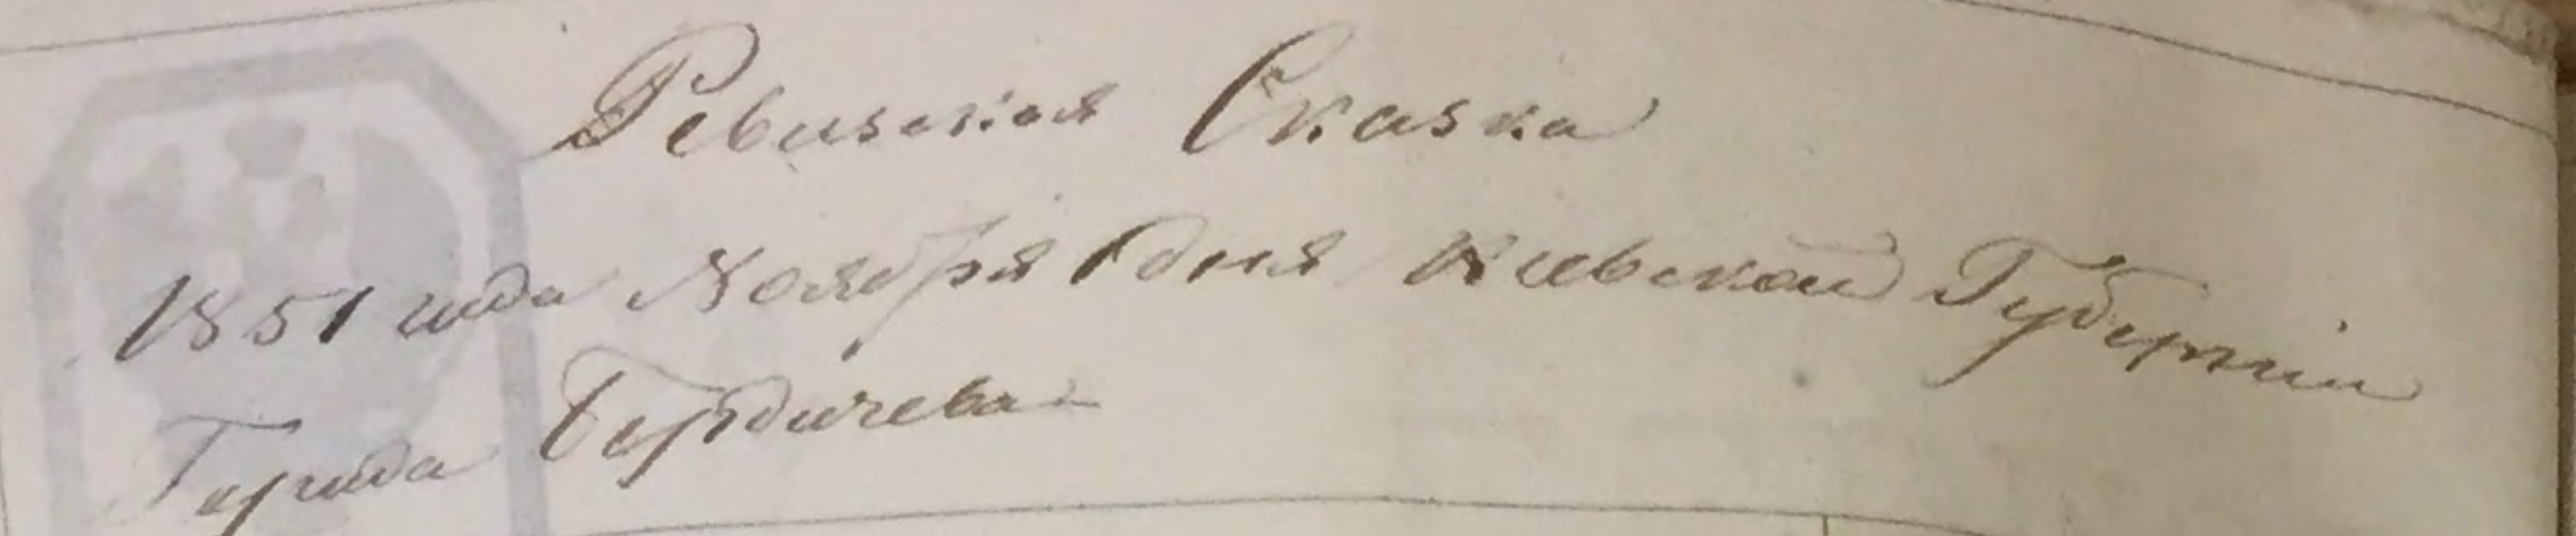 Ревизская Сказка
1851 года Ноября 1 дня Киевской Губернiи
Города Бердичева